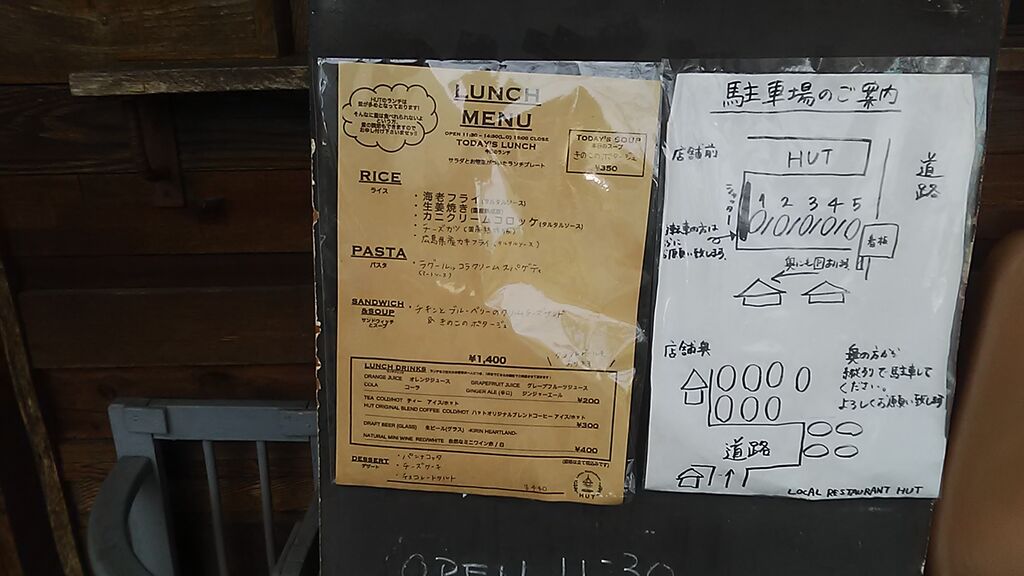 HUTのランチは
量が多めとなっております!
LUNCH
MENU
OPEN 11:30 - 14:30(L.O) 15:00 CLOSE
TODAY'S LUNCH
今日のランチ
サラダとお惣菜がついたランチプレート
TODAY'S SOUP
本日のスープ
きのこのポタージュ
¥350
RICE
ライス
・海老フライ(タルタルソース)
・生姜焼き
・カニクリームコロッケ(タルタルソース)
・チーズカツ
・広島県産カキフライ(タルタルソース)
PASTA
パスタ
SANDWICH
&SOUP
サンドウィッチ
とスープ
・チキンとブルーベリーのクリームチーズサンド
& きのこのポタージュ
¥1,400
LUNCH DRINKS
ORANGE JUICE オレンジジュース GRAPEFRUIT JUICE グレープフルーツジュース
COLA コーラ GINGER ALE (辛口) ジンジャーエール
¥200
TEA COLD/HOT ティー アイス/ホット
HUT ORIGINAL BLEND COFFEE COLD/HOT ハットオリジナルブレンドコーヒー アイス/ホット
¥300
DRAFT BEER (GLASS) 生ビール(グラス) -KIRIN HEARTLAND-
NATURAL MINI WINE RED/WHITE 自然なミニワイン 赤/白
¥400
DESSERT
デザート
・パンナコッタ
・チーズケーキ
・チョコレートタルト
HUT
駐車場のご案内
店舗前
HUT
道路
シャッター
1 2 3 4 5
看板
店舗奥
奥の方から
詰めて駐車して
ください。
よろしくお願い致します
道路
LOCAL RESTAURANT HUT
OPEN 11:30